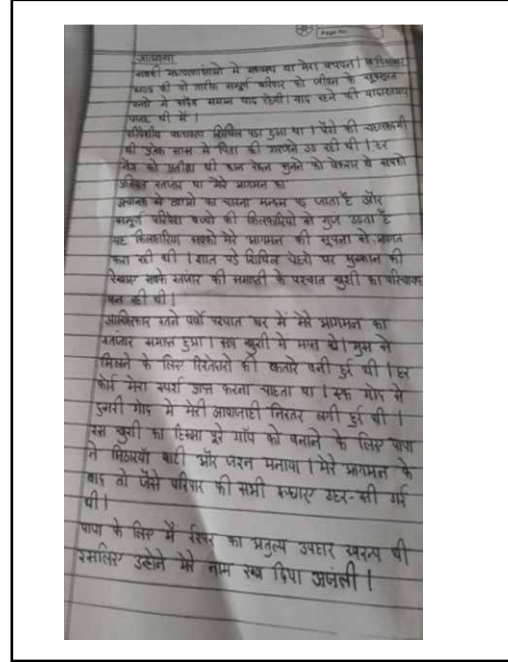 Page No.
आत्मकथा
सबकी महत्वाकांक्षाओं में मध्यस्थ था मेरा बचपन। 18 दिसम्बर
की वो तारीख सम्पूर्ण परिवार को जीवन के खूबसूरत
पलों में सदैव समान याद रहेगी। याद रहने की यादास्तमय
वजह थी मैं।
पारिवारिक वातावरण शिथिल पड़ा हुआ था। पैरों की चहलकदमी
थी प्रत्येक सास मे पिता की गरजने उठ रही थी। हर
नेत्र को प्रतीक्षा थी कान वेदन सुनने को बेकरार थे सबको
प्रतिपल इतंजार था मेरे आगमन का
अचानक से व्यथा का चीखना मध्दम पड़ जाता है और
सम्पूर्ण परिवेश बच्चो की किलकारियो से गुज उठता है
यह किलकारिया सबको मेरे आगमन की सूचना से अवगत
करा रही थी। शात पड़े शिथिल चेहरो पर मुस्कान की
रेखाए सबके इतंजार की समाप्ती के पश्चात खुशी का परिचायक
बन रही थी।
आखिरकार इतने वर्षो पश्चात घर में मेरे आगमन का
इतंजार समाप्त हुआ। सब खुशी में मग्न थे। मुझ से
मिलने के लिए रिश्तेदारो की कतारे बनी हुई थी। हर
कोई मेरा स्पर्श प्राप्त करना चाहता था। एक गोद से
दुसरी गोद मे मेरी आवाजाही निरतंर लगी हुई थी।
इस खुशी का हिस्सा पूरे गाँव को बनाने के लिए पापा
ने मिठाईयाँ बाटी और जश्न मनाया। मेरे आगमन के
बाद तो जैसे परिवार की सभी इच्छाए ठहर-सी गई
थी।
पापा के लिए मैं ईश्वर का अतुल्य उपहार स्वरूप थी
इसलिए उन्होने मेरे नाम रख दिया अजंली।